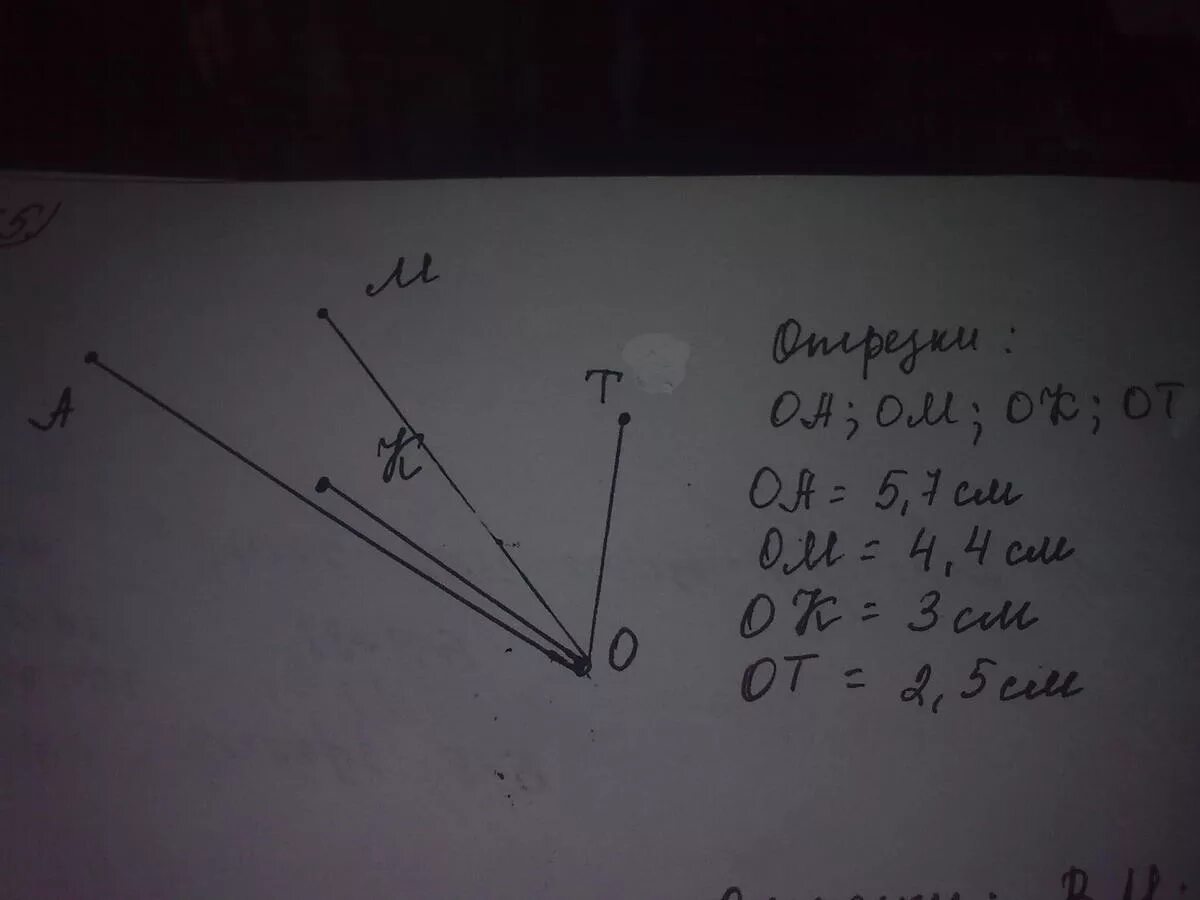 5.
М
А
Т
К
О
Отрезки:
ОА; ОМ; ОК; ОТ
ОА = 5,7 см
ОМ = 4,4 см
ОК = 3 см
ОТ = 2,5 см